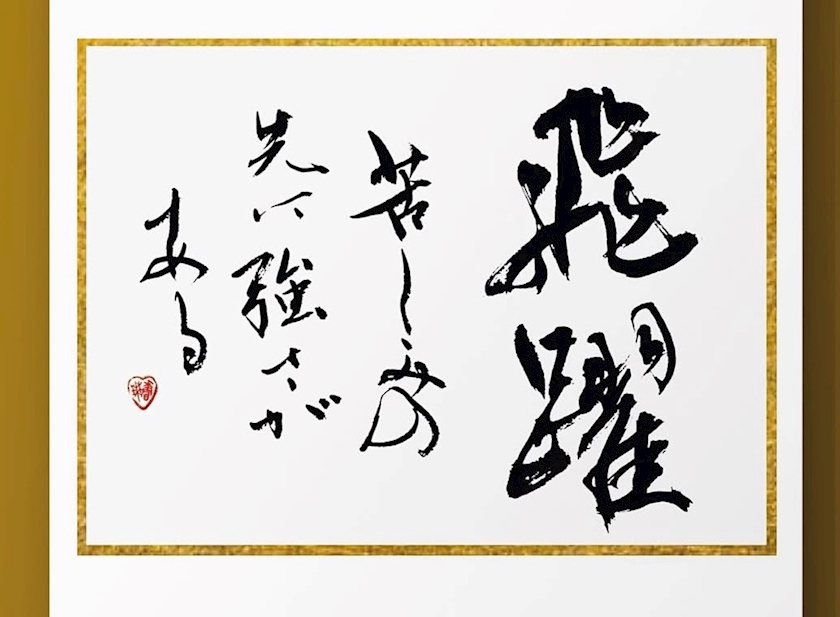 飛躍
苦しみの
先に強さが
ある